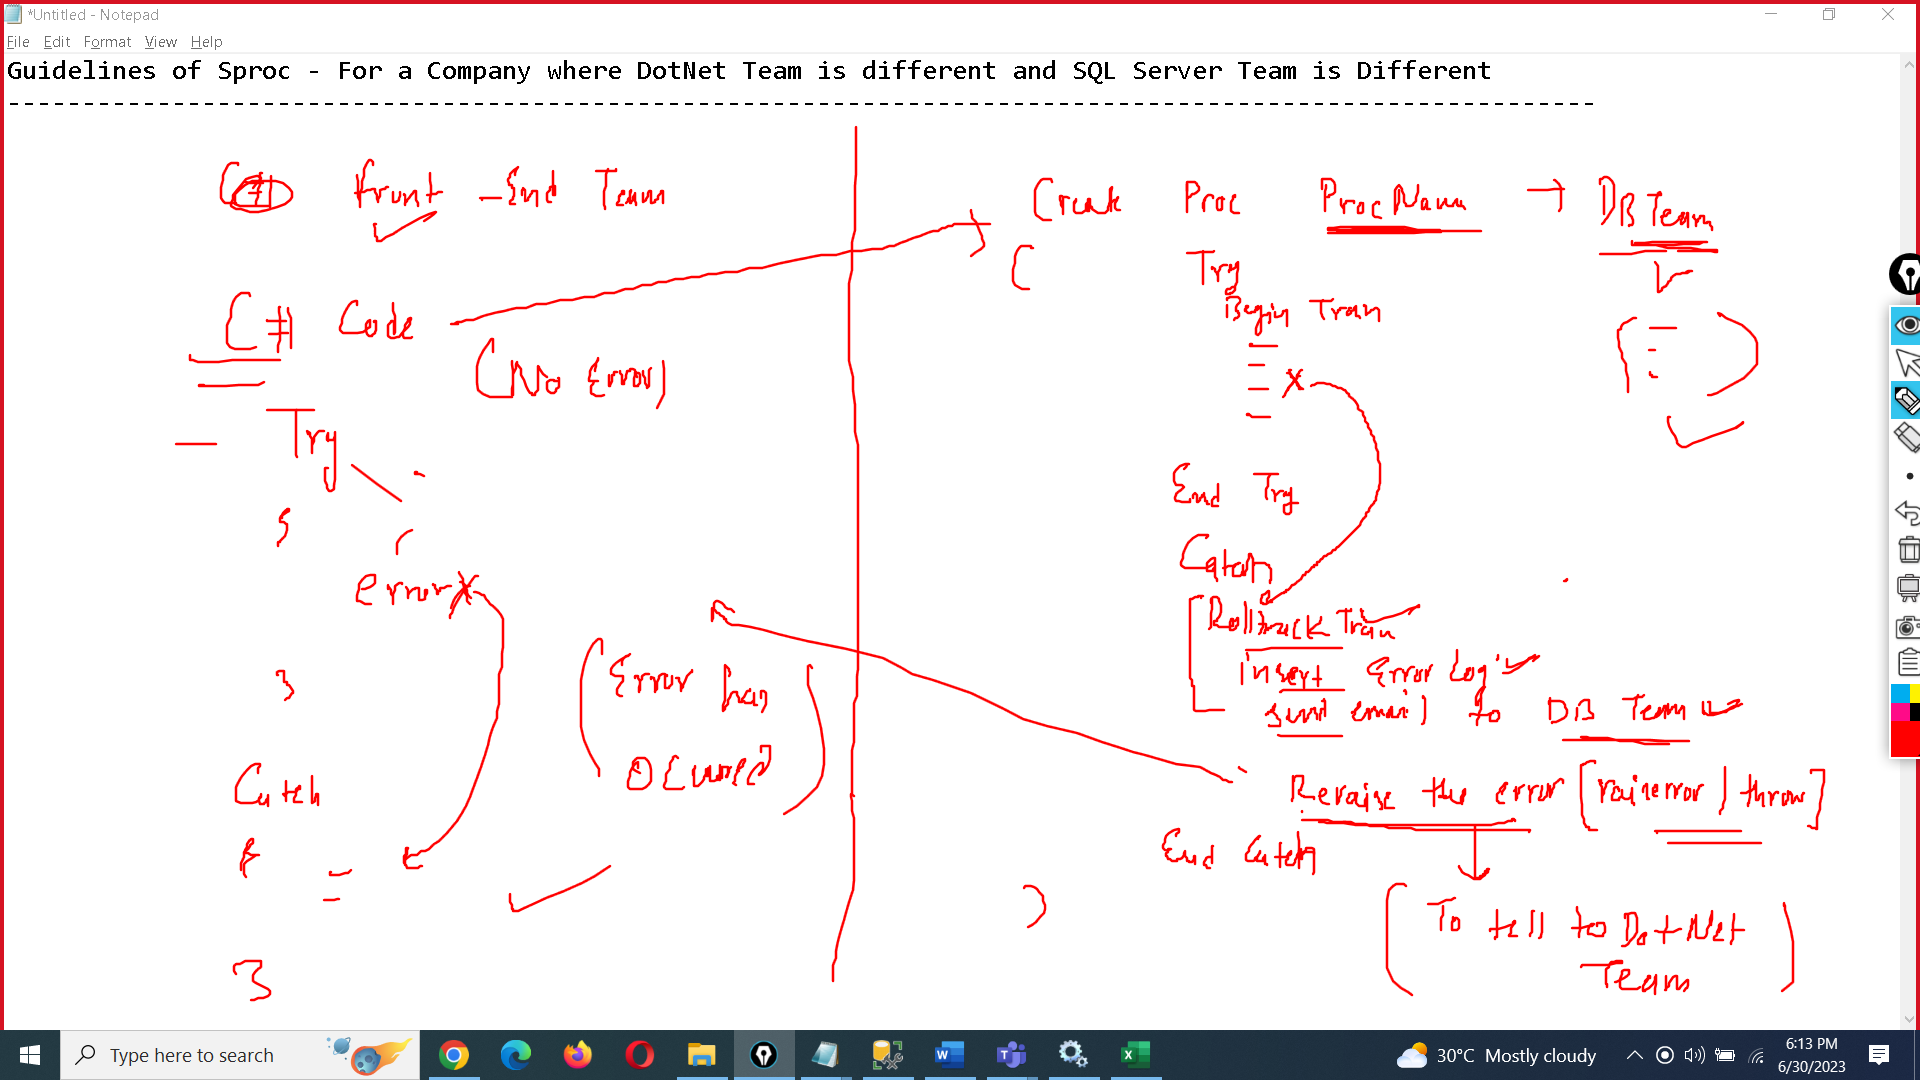 *Untitled - Notepad
File Edit Format View Help
Guidelines of Sproc - For a Company where DotNet Team is different and SQL Server Team is Different
-----------------------------------------------------------------------------------------------------------
C# Front - End Team
C# Code
(No Error)
Try
error x
Error has
Occurred
Catch
Create Proc ProcName → DB Team
Try
Begin Tran
x
End Try
Catch
Rollback Tran
insert Error Log
send email to DB Team
Reraise the error [raiserror / throw]
End Catch
To tell to DotNet
Team
Type here to search
30°C Mostly cloudy
6:13 PM
6/30/2023